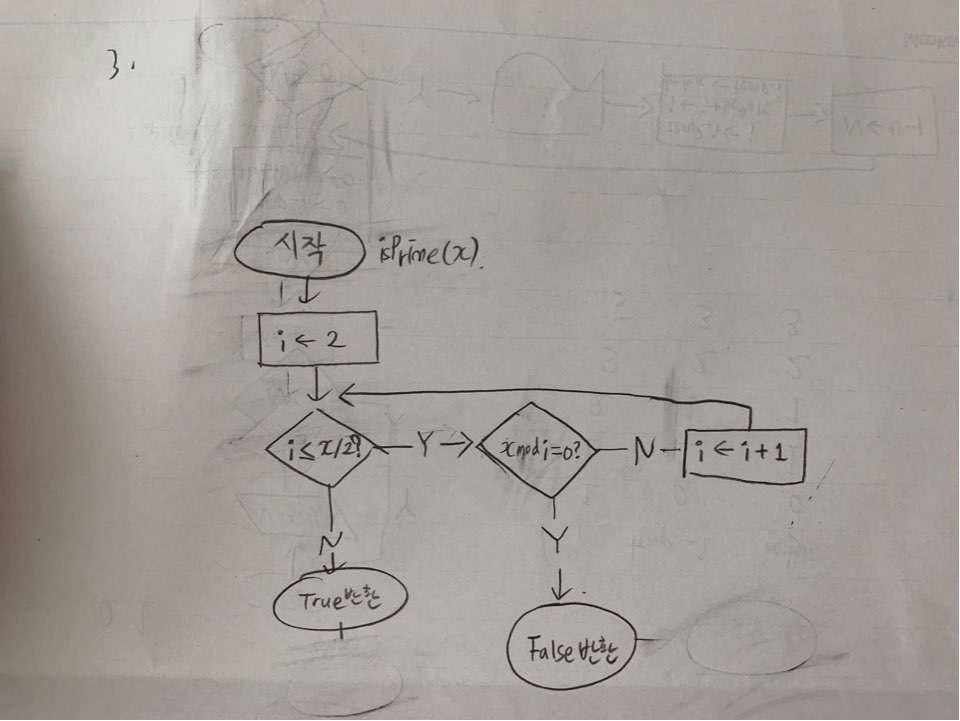 3.
시작 isPrime(x).
i ← 2
i ≤ x/2?
Y
x mod i = 0?
N
i ← i + 1
N
Y
True 반환
False 반환